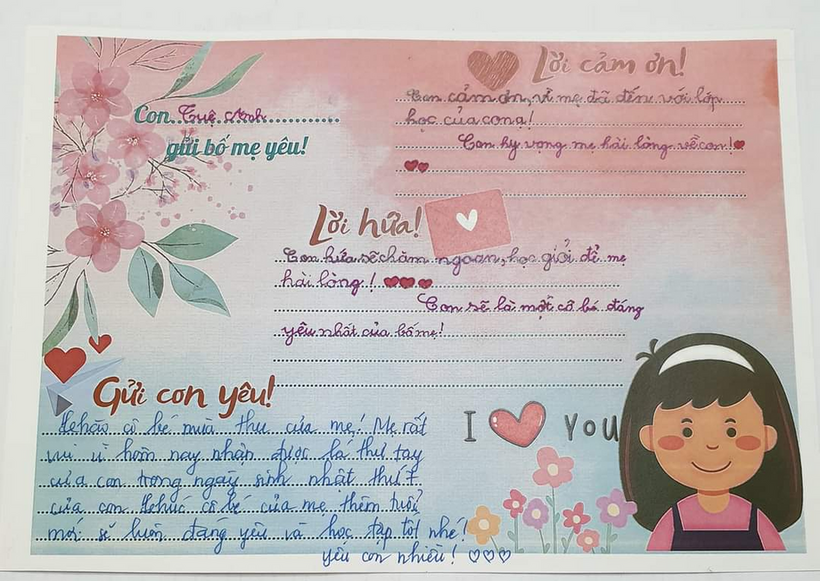 Con Tuệ Anh
gửi bố mẹ yêu!
Lời cảm ơn!
Con cảm ơn, vì mẹ đã đến với lớp
học của cong!
Con hy vọng mẹ hài lòng về con!
Lời hứa!
Con hứa sẽ chăm ngoan, học giỏi để mẹ
hài lòng!
Con sẽ là một cô bé đáng
yêu nhất của bố mẹ!
Gửi con yêu!
cô bé mùa thu của mẹ! Mẹ rất
vui vì hôm nay nhận được lá thư tay
của con trong ngày sinh nhật thứ 7
của con. Chúc cô bé của mẹ thêm tuổi
mới sẽ luôn đáng yêu và học tập tốt nhé!
yêu con nhiều!
I You